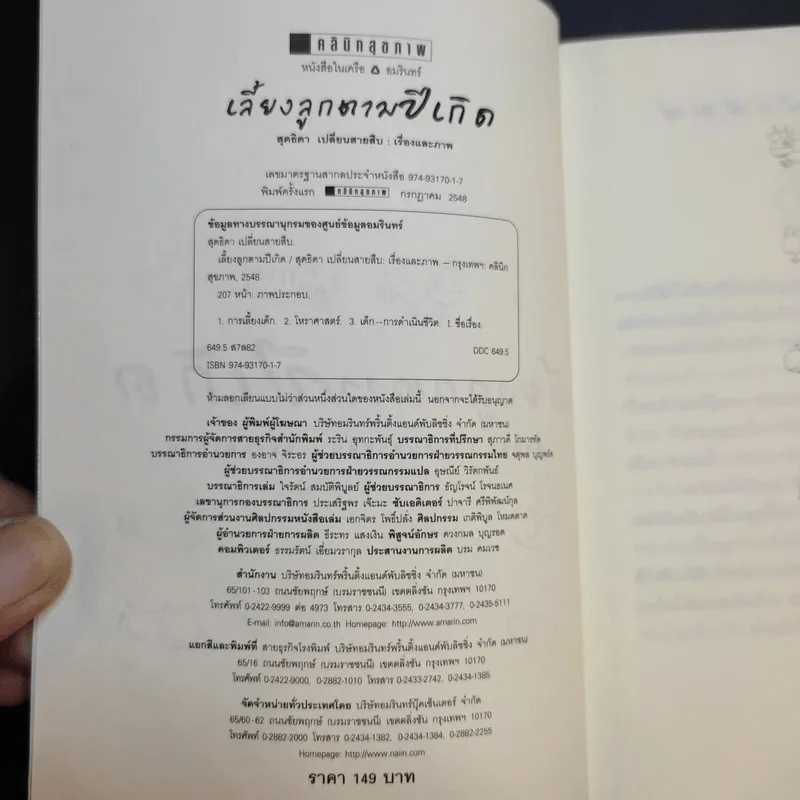 คลินิกสุขภาพ
หนังสือในเครือ อมรินทร์
เลี้ยงลูกตามปีเกิด
สุดธิดา เปลี่ยนสายสืบ : เรื่องและภาพ
เลขมาตรฐานสากลประจำหนังสือ 974-93170-1-7
พิมพ์ครั้งแรก คลินิกสุขภาพ กรกฎาคม 2548
ข้อมูลทางบรรณานุกรมของศูนย์ข้อมูลอมรินทร์
สุดธิดา เปลี่ยนสายสืบ.
เลี้ยงลูกตามปีเกิด / สุดธิดา เปลี่ยนสายสืบ: เรื่องและภาพ. — กรุงเทพฯ: คลินิก
สุขภาพ, 2548.
207 หน้า: ภาพประกอบ.
1. การเลี้ยงเด็ก. 2. โหราศาสตร์. 3. เด็ก--การดำเนินชีวิต. I. ชื่อเรื่อง.
649.5 ส7ล82 DDC 649.5
ISBN 974-93170-1-7
ห้ามลอกเลียนแบบไม่ว่าส่วนหนึ่งส่วนใดของหนังสือเล่มนี้ นอกจากจะได้รับอนุญาต
เจ้าของ ผู้พิมพ์ผู้โฆษณา บริษัทอมรินทร์พริ้นติ้งแอนด์พับลิชชิ่ง จำกัด (มหาชน)
กรรมการผู้จัดการสายธุรกิจสำนักพิมพ์ ระริน อุทกะพันธุ์ บรรณาธิการที่ปรึกษา สุภาวดี โกมารทัต
บรรณาธิการอำนวยการ องอาจ จิระอร ผู้ช่วยบรรณาธิการอำนวยการฝ่ายวรรณกรรมไทย จตุพล บุญพรัด
ผู้ช่วยบรรณาธิการอำนวยการฝ่ายวรรณกรรมแปล อุษณีย์ วิรัตกพันธ์
บรรณาธิการเล่ม ใจรัตน์ สมบัติพิบูลย์ ผู้ช่วยบรรณาธิการ ธัญโรจน์ โรจนธเนศ
เลขานุการกองบรรณาธิการ ประเสริฐพร เจ๊ะมะ ซับเอดิเตอร์ ปาจารี ศรีพิพัฒน์กุล
ผู้จัดการส่วนงานศิลปกรรมหนังสือเล่ม เอกจิตร โพธิ์ปลั่ง ศิลปกรรม เกติพิบูล โหมดตาด
ผู้อำนวยการฝ่ายการผลิต ธีระทร แสงเงิน พิสูจน์อักษร ดวงกมล บุญรอด
คอมพิวเตอร์ ธรรมรัตน์ เอี่ยมวรากุล ประสานงานการผลิต บรม คมเวช
สำนักงาน บริษัทอมรินทร์พริ้นติ้งแอนด์พับลิชชิ่ง จำกัด (มหาชน)
65/101-103 ถนนชัยพฤกษ์ (บรมราชชนนี) เขตตลิ่งชัน กรุงเทพฯ 10170
โทรศัพท์ 0-2422-9999 ต่อ 4973 โทรสาร 0-2434-3555, 0-2434-3777, 0-2435-5111
E-mail: info@amarin.co.th Homepage: http://www.amarin.com
แยกสีและพิมพ์ที่ สายธุรกิจโรงพิมพ์ บริษัทอมรินทร์พริ้นติ้งแอนด์พับลิชชิ่ง จำกัด (มหาชน)
65/16 ถนนชัยพฤกษ์ (บรมราชชนนี) เขตตลิ่งชัน กรุงเทพฯ 10170
โทรศัพท์ 0-2422-9000, 0-2882-1010 โทรสาร 0-2433-2742, 0-2434-1385
จัดจำหน่ายทั่วประเทศโดย บริษัทอมรินทร์บุ๊คเซ็นเตอร์ จำกัด
65/60-62 ถนนชัยพฤกษ์ (บรมราชชนนี) เขตตลิ่งชัน กรุงเทพฯ 10170
โทรศัพท์ 0-2882-2000 โทรสาร 0-2434-1382, 0-2434-1384, 0-2882-2255
Homepage: http://www.naiin.com
ราคา 149 บาท